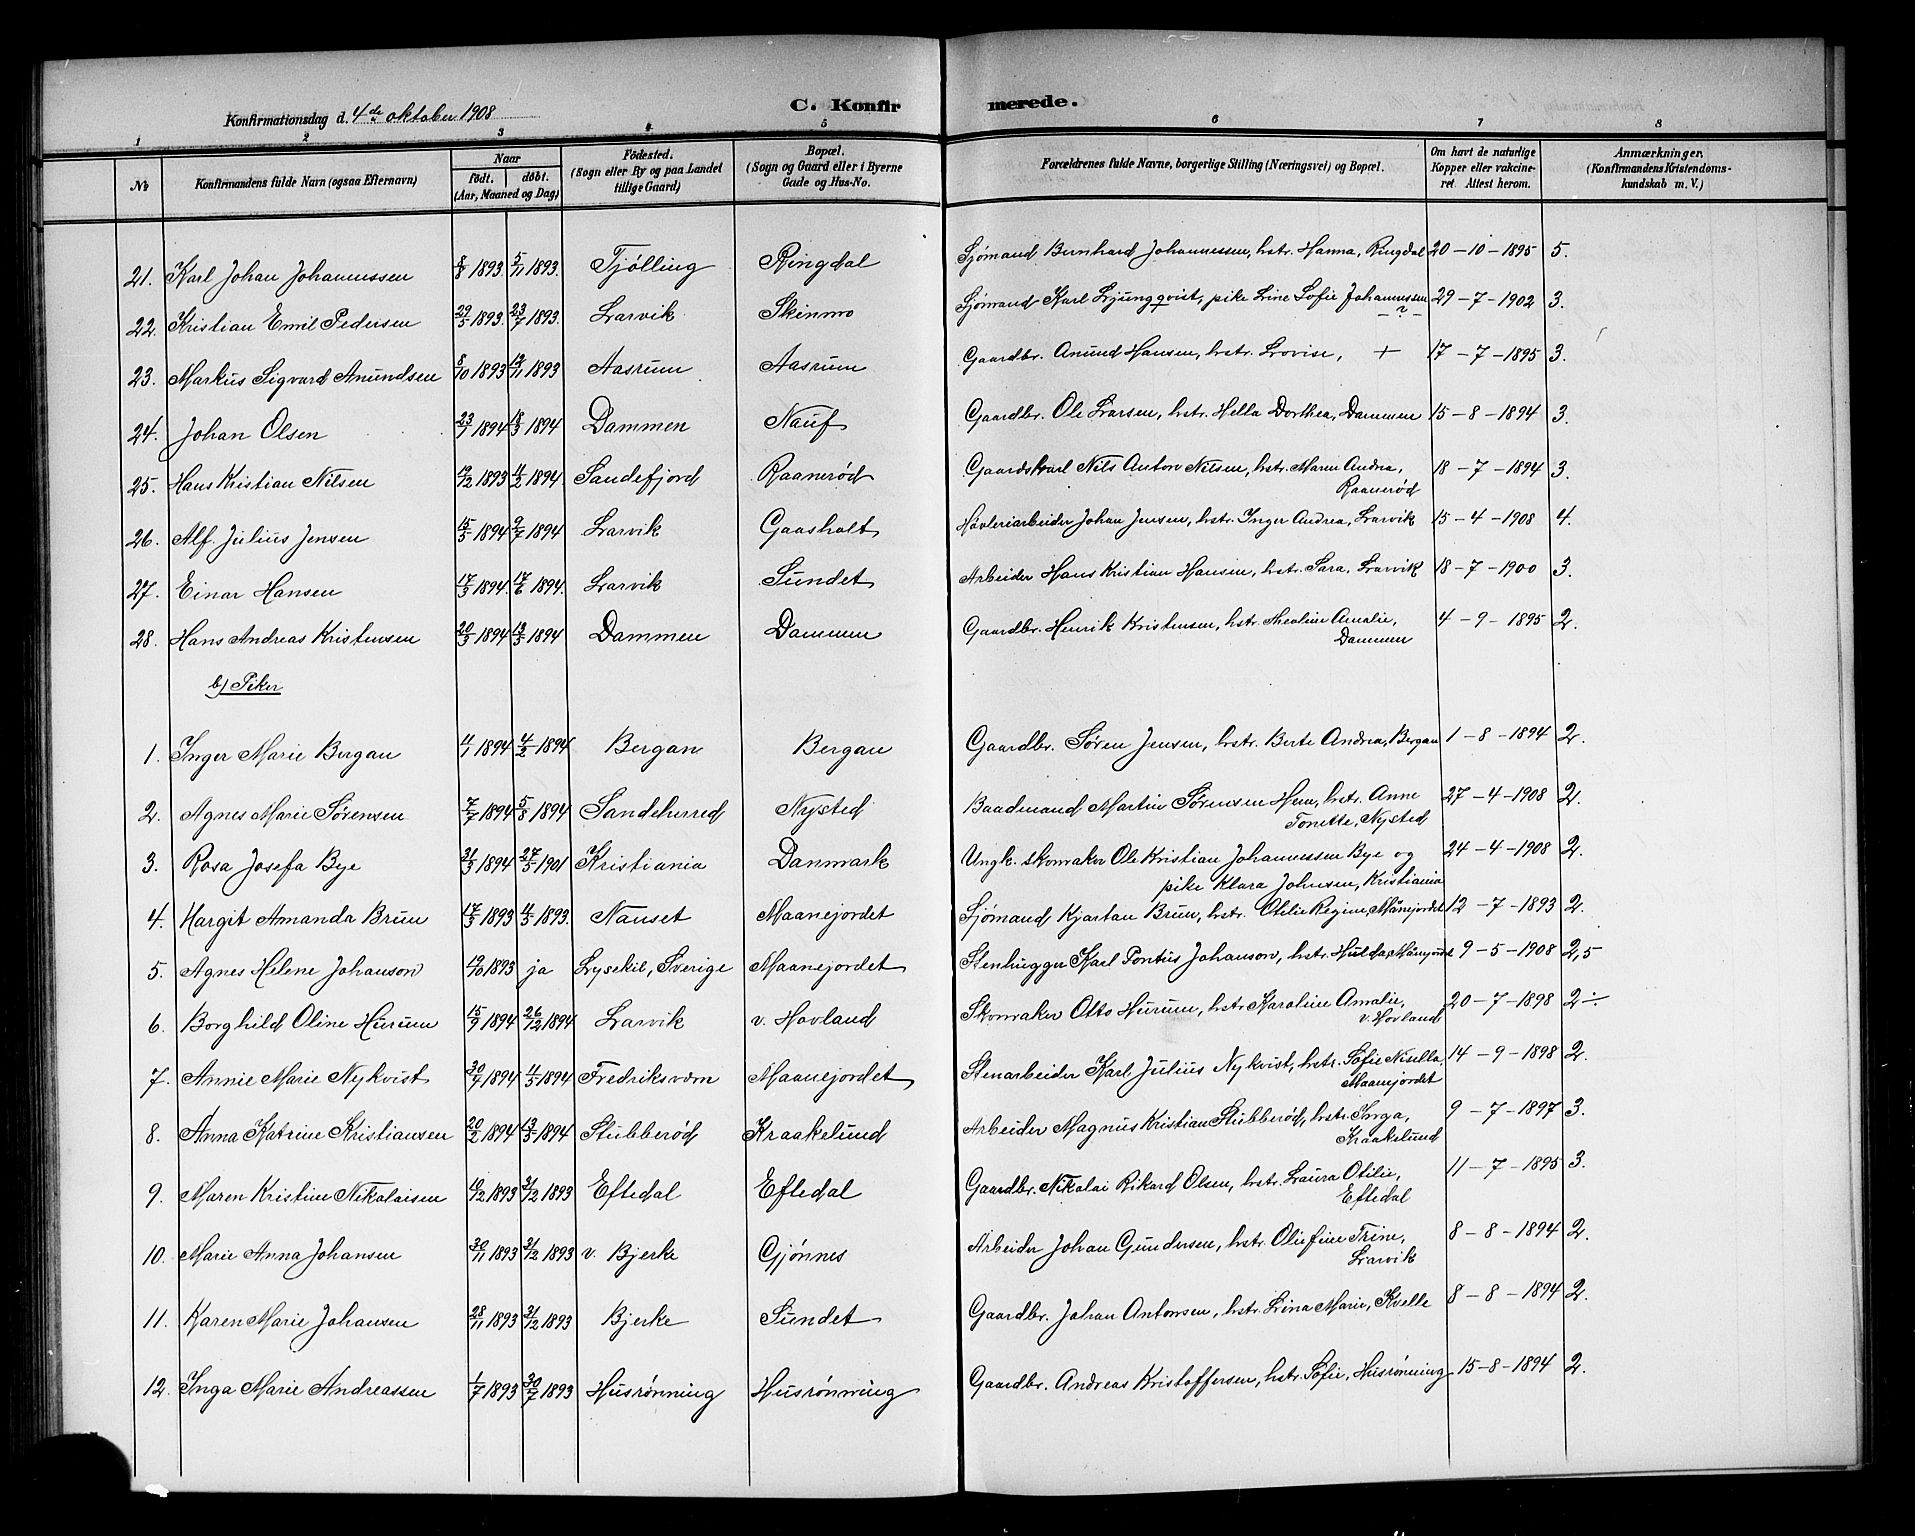 Konfirmationsdag d. 4de oktober 1908
C. Konfirmerede.
1 2 3 4 5 6 7 8
No
Konfirmandens fulde Navn (ogsaa Efternavn)
Naar
født. døbt.
(Aar, Maaned og Dag)
Fødested.
(Sogn eller By og paa Landet
tillige Gaard)
Bopæl.
(Sogn og Gaard eller i Byerne
Gade og Hus-No.
Forældrenes fulde Navne, borgerlige Stilling (Næringsvei) og Bopæl.
Om havt de naturlige
Kopper eller vakcine-
ret. Attest herom.
Anmærkninger.
(Konfirmandens Kristendoms-
kundskab m. V.)
21. Karl Johan Johannessen 8/9 1893 5/11 1893. Tjølling Ringdal Sjømand Bernhard Johannessen, hstr. Hanna, Ringdal 20-10-1895 5.
22. Kristian Emil Pedersen 29/5 1893. 23/7 1893. Larvik Skinmo Sjømand Karl Ljungqvist, pike Line Sofie Johannessen 29-7-1902 3.
-?-
23. Markus Sigvard Anundsen 8/10 1893 12/11 1893 Aasrum Aasrum Gaardbr. Anund Hansen, hstr. Lovise, + 17-7-1895 3.
24. Johan Olsen 23/1 1894 18/3 1894 Dammen Nauf Gaardbr. Ole Larsen, hstr. Hella Dorthea, Dammen 15-8-1894 3.
25. Hans Kristian Nilsen 19/12 1893 11/2 1894 Sandefjord Raanerød Gaardskarl Nils Anton Nilsen, hstr. Maren Andrea, 18-7-1894 3.
Raanerød
26. Alf Julius Jensen 15/5 1894 9/7 1894 Larvik Gaasholt Høvleriarbeider Johan Jensen, hstr. Inger Andrea, Larvik 15-4-1908 4.
27. Einar Hansen 17/3 1894. 17/6 1894. Larvik Sundet Arbeider Hans Kristian Hansen, hstr. Sara, Larvik 18-7-1900 3.
28. Hans Andreas Kristensen 20/3 1894 13/5 1894 Dammen Dammen Gaardbr. Henrik Kristensen, hstr. Theoline Amalie, 4-9-1895 2.
Dammen
b) Piker
1. Inger Marie Bergan 4/1 1894 4/2 1894 Bergan Bergan Gaardbr. Søren Jensen, hstr. Berte Andrea, Bergan 1-8-1894 2.
2. Agnes Marie Sørensen 7/7 1894 5/8 1894 Sandeherred Nysted Baadsmand Martin Sørensen Hem, hstr. Anne 27-4-1908 2.
Tonette, Nysted
3. Rosa Josefa Bye 31/3 1894 27/5 1901 Kristiania Danmark Ungk. skomaker Ole Kristian Johannessen Bye og 24-4-1908 2.
pike Klara Johnsen, Kristiania
4. Hargit Amanda Brun 17/3 1893 11/5 1893. Nauset Maanejordet Sjømand Kjartan Brun, hstr. Otilie Regine, Månejordet 12-7-1893 2.
5. Agnes Helene Johanson 19/10 1893 ja Lysekil, Sverige Maanejordet Stenhugger Karl Pontus Johanson, hstr. Hulda, Månejordet 9-5-1908 2,5
6. Borghild Oline Hurum 15/9 1894 26/12 1894 Larvik v. Hovland Skomaker Otto Hurum, hstr. Karoline Amalie, 20-7-1898 2÷
v. Hovland
7. Annie Marie Nykvist 30/1 1894 4/5 1894 Fredriksværn Maanejordet Stenarbeider Karl Julius Nykvist, hstr. Sofie Nisella, 14-9-1898 2.
Maanejordet
8. Anna Katrine Kristiansen 20/2 1894 13/5 1894 Stubberød Kraakelund Arbeider Magnus Kristian Stubberød, hstr. Inga, 9-7-1897 3.
Kraakelund
9. Maren Kristine Nikolaisen 10/12 1893 31/12 1893 Eftedal Eftedal Gaardbr. Nikolai Rikard Olsen, hstr. Laura Otilie, 11-7-1895 3.
Eftedal
10. Marie Anna Johansen 30/11 1893 31/12 1893 v. Bjerke Gjønnes Arbeider Johan Gundersen, hstr. Oliefine Trine, 8-8-1894 2.
Larvik
11. Karen Marie Johansen 28/11 1893 31/12 1893 Bjerke Sundet Gaardbr. Johan Antonsen, hstr. Lina Marie, Kvelle 8-8-1894 2.
12. Inga Marie Andreassen 1/7 1893 30/7 1893 Husrønning Husrønning Gaardbr. Andreas Kristoffersen, hstr. Sofie, Husrønning 15-8-1894 2.